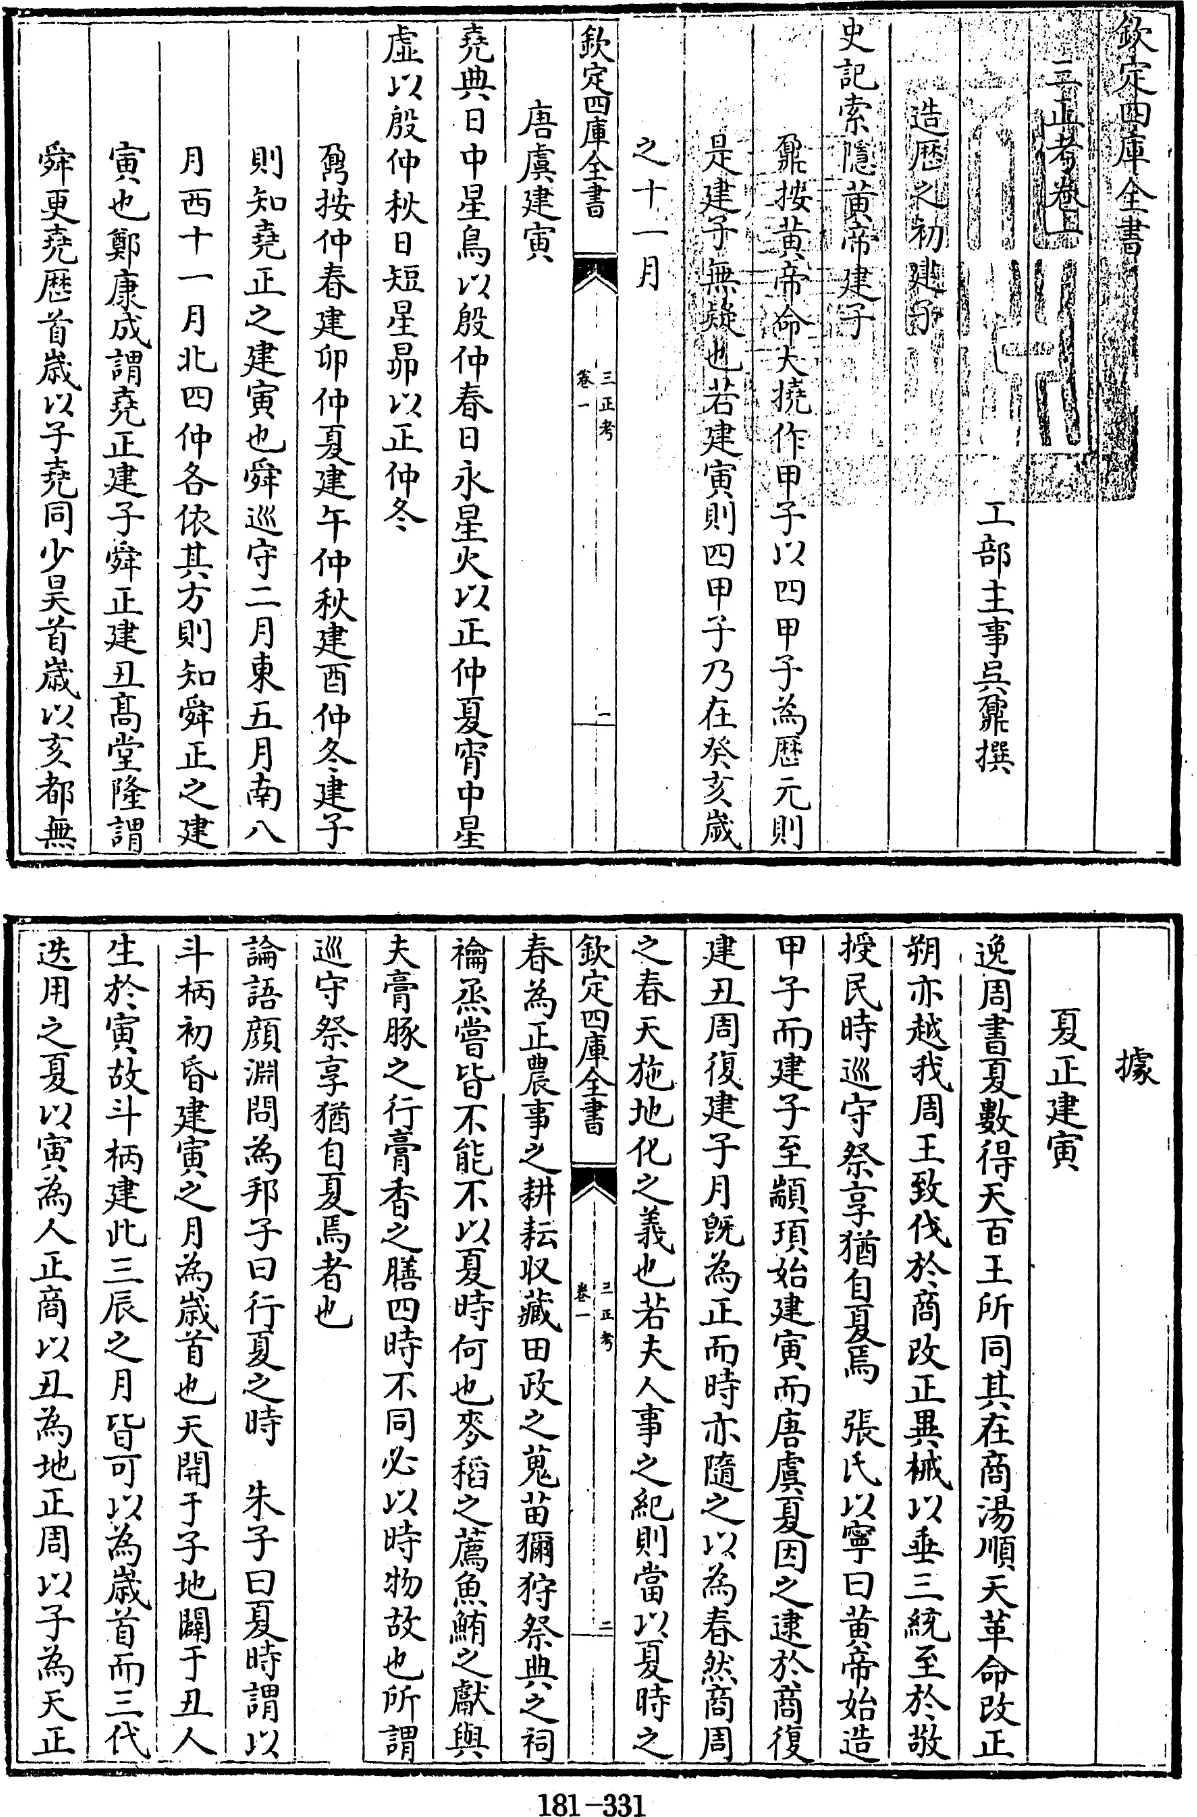 欽定四庫全書
三正考卷上
工部主事吳鼐撰
造歷之初建子
史記索隱黄帝建子
鼐按黄帝命大撓作甲子以四甲子為歷元則
是建子無疑也若建寅則四甲子乃在癸亥嵗
之十一月
欽定四庫全書
三正考
卷一
一
唐虞建寅
堯典日中星鳥以殷仲春日永星火以正仲夏宵中星
虛以殷仲秋日短星昴以正仲冬
鼐按仲春建卯仲夏建午仲秋建酉仲冬建子
則知堯正之建寅也舜巡守二月東五月南八
月西十一月北四仲各依其方則知舜正之建
寅也鄭康成謂堯正建子舜正建丑髙堂隆謂
舜更堯歷首嵗以子堯同少昊首嵗以亥都無
據
夏正建寅
逸周書夏數得天百王所同其在商湯順天革命改正
朔亦越我周王致伐於商改正異械以垂三統至於敬
授民時巡守祭享猶自夏焉　張氏以寧曰黄帝始造
甲子而建子至顓頊始建寅而唐虞夏因之逮於商復
建丑周復建子月既為正而時亦隨之以為春然商周
之春天施地化之義也若夫人事之紀則當以夏時之
欽定四庫全書
三正考
卷一
二
春為正農事之耕耘収藏田政之蒐苗獮狩祭典之祠
禴烝嘗皆不能不以夏時何也麥稻之薦魚鮪之獻與
夫膏豚之行膏香之膳四時不同必以時物故也所謂
巡守祭享猶自夏焉者也
論語顔淵問為邦子曰行夏之時　朱子曰夏時謂以
斗柄初昏建寅之月為嵗首也天開于子地闢于丑人
生於寅故斗柄建此三辰之月皆可以為嵗首而三代
迭用之夏以寅為人正商以丑為地正周以子為天正
181-331